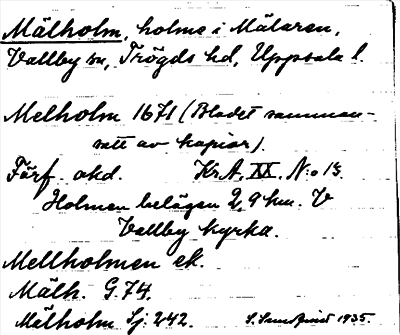 Mälholm, holme i Mälaren,
Vallby sn, Trögds hd, Uppsala l.
Melholm 1671 (Bladet samman-
satt av kopior).
Förf. okd. KrA, XX, N:o 13.
Holmen belägen 2,9 km. V
Vallby kyrka.
Mellholmen ek.
Mälh. G.74.
Mälholm Lj. 242. 1935.